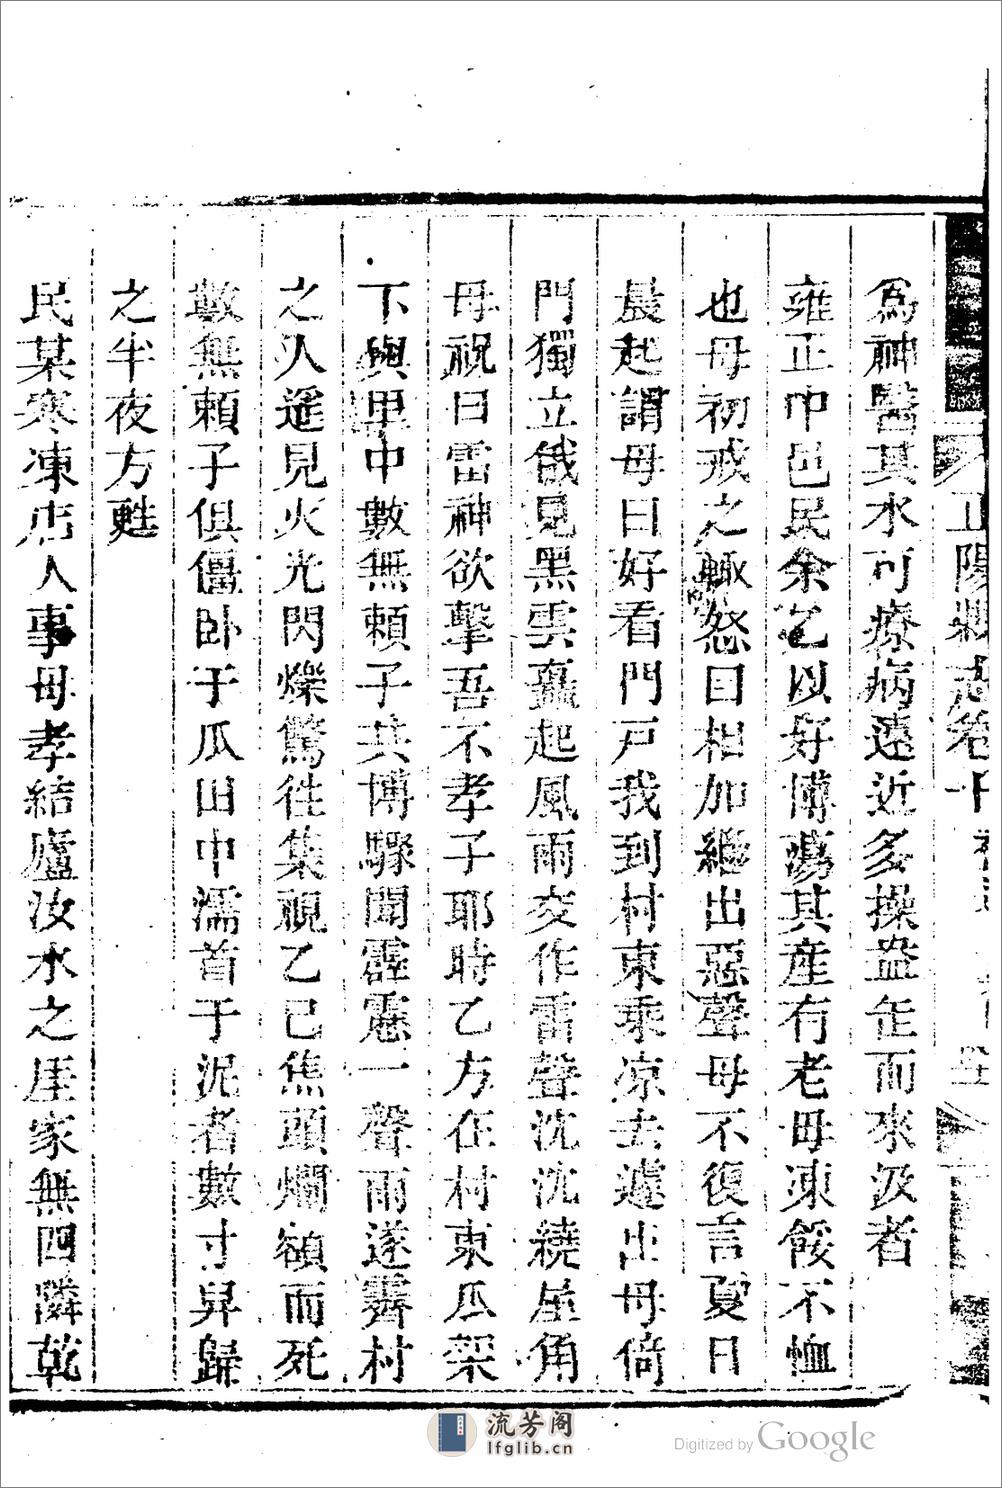 正陽縣志卷十
為神醫其水可療病遠近多操盎缶而來汲者
雍正中邑民余乙以好博蕩其產有老母凍餒不恤
也母初戒之輙怒目相加繼出惡聲母不復言夏日
晨起謂母曰好看門戸我到村東乘凉去遽出母倚
門獨立俄見黑雲矗起風雨交作雷聲沈沈繞屋角
母祝曰雷神欲擊吾不孝子耶時乙方在村東瓜架
下與里中數無賴子共博驟聞霹靂一聲雨遂霽村
之人遥見火光閃爍驚徃集視乙已焦頭爛額而死
數無賴子俱僵卧于瓜田中濡首于泥者數寸舁歸
之半夜方甦
民某寒凍店人事母孝結廬汝水之厓家無四隣乾
流芳阁
lfglib.cn
Digitized by Google